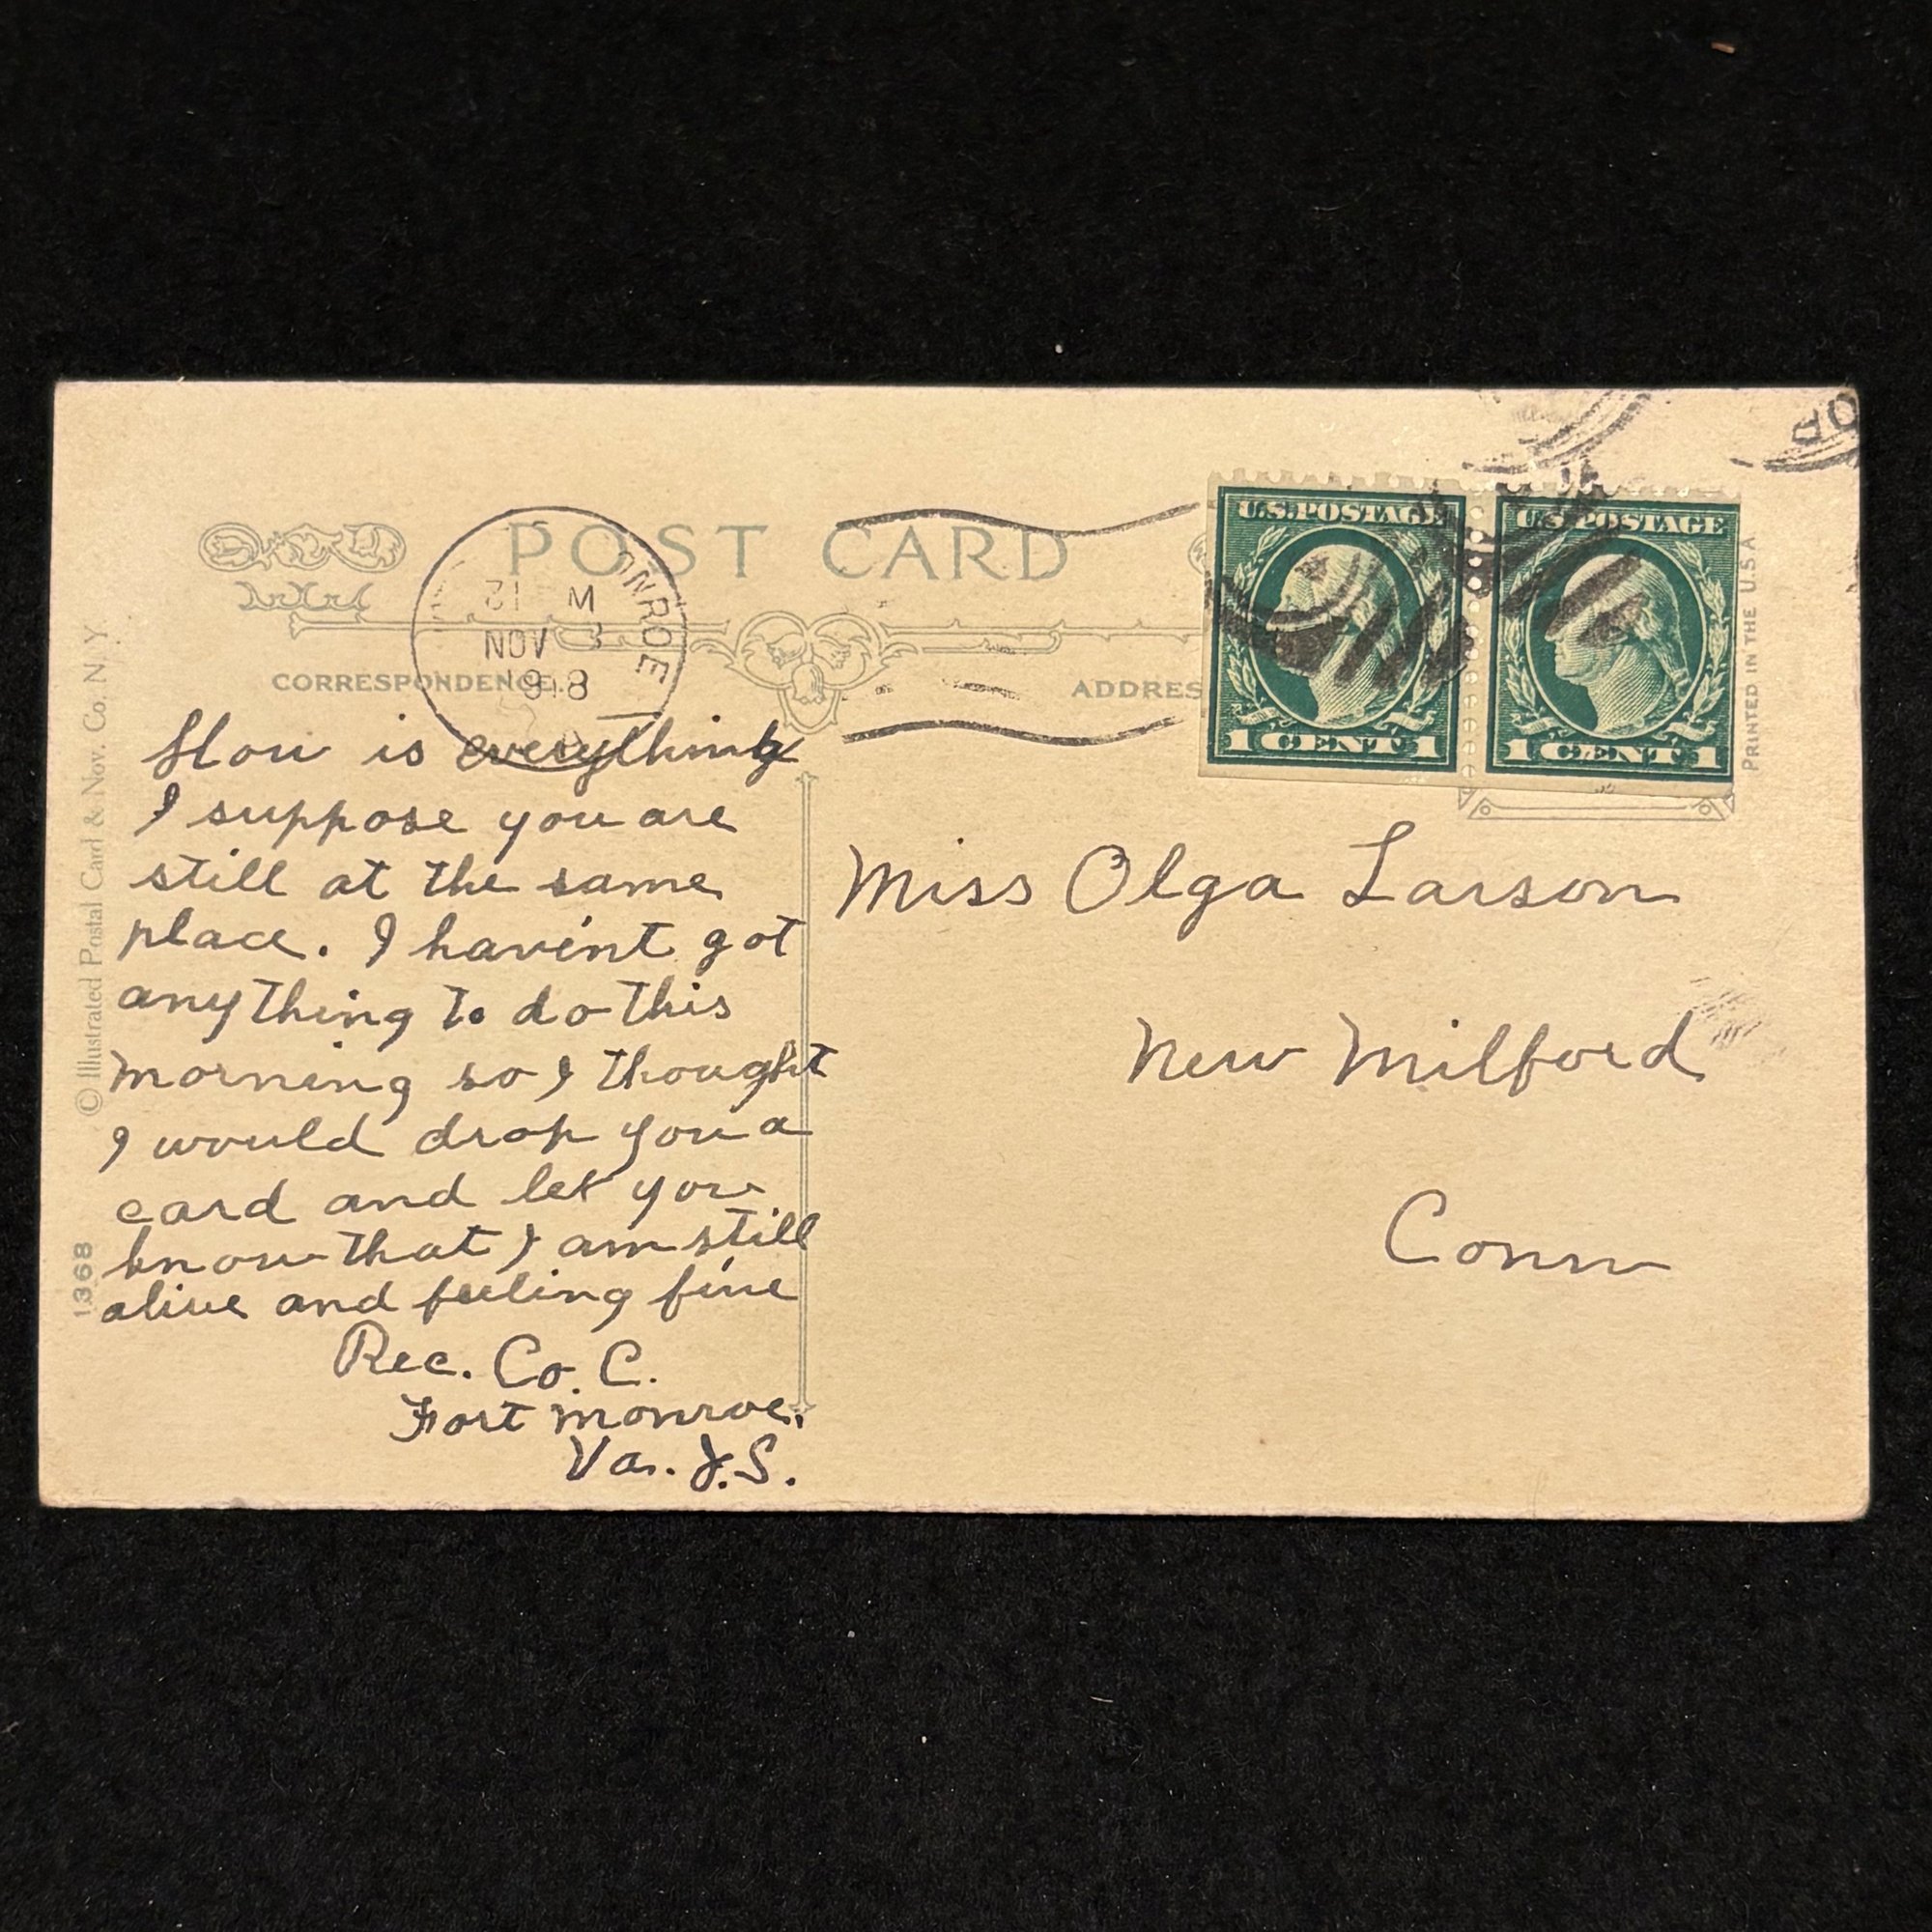 POST CARD
ONROE
12 M
NOV 3
1918
CORRESPONDENCE
ADDRES
U.S.POSTAGE
1 CENT 1
U.S.POSTAGE
1 CENT 1
PRINTED IN THE U.S.A
© Illustrated Postal Card & Nov. Co. N.Y.
1368
How is everything
I suppose you are
still at the same
place. I havin't got
anything to do this
morning so I thought
I would drop you a
card and let you
know that I am still
alive and feeling fine
Rec. Co. C.
Fort Monroe.
Va. J.S.
Miss Olga Larson
New Milford
Conn